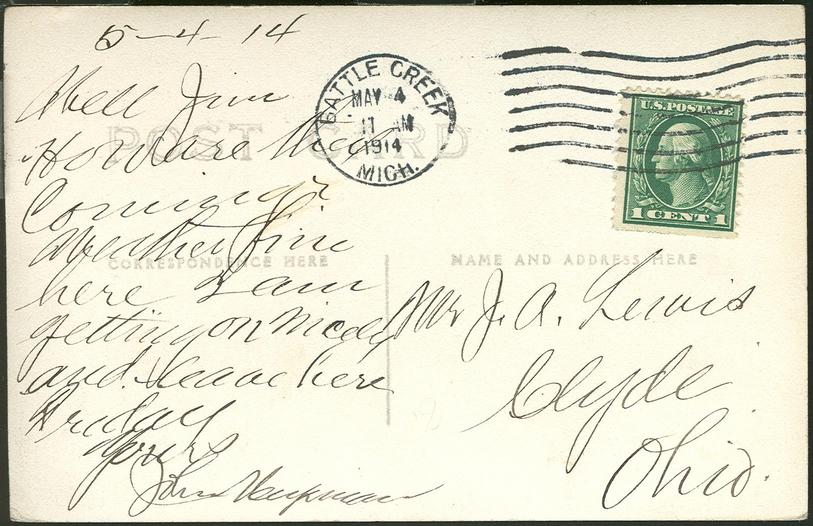 5-4-14
Well Jim
How are they
Coming?
Weather fine
here I am
getting on nicely
and leave here
Friday
Yours
John
BATTLE CREEK
MAY 4
11 AM
1914
MICH.
U.S. POSTAGE
1 CENT 1
POST CARD
CORRESPONDENCE HERE
NAME AND ADDRESS HERE
Mr J. A. Lewis
Clyde
Ohio.